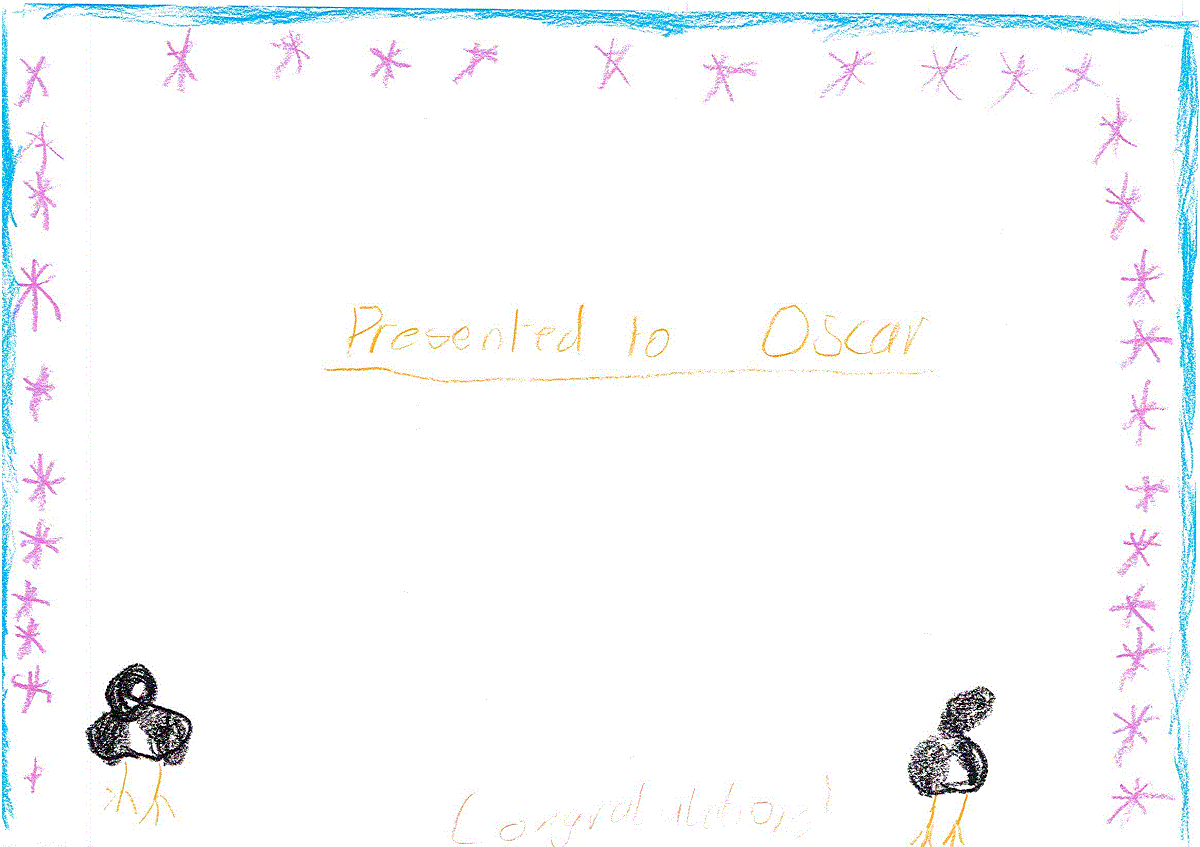 Presented to Oscar
Congratulations!